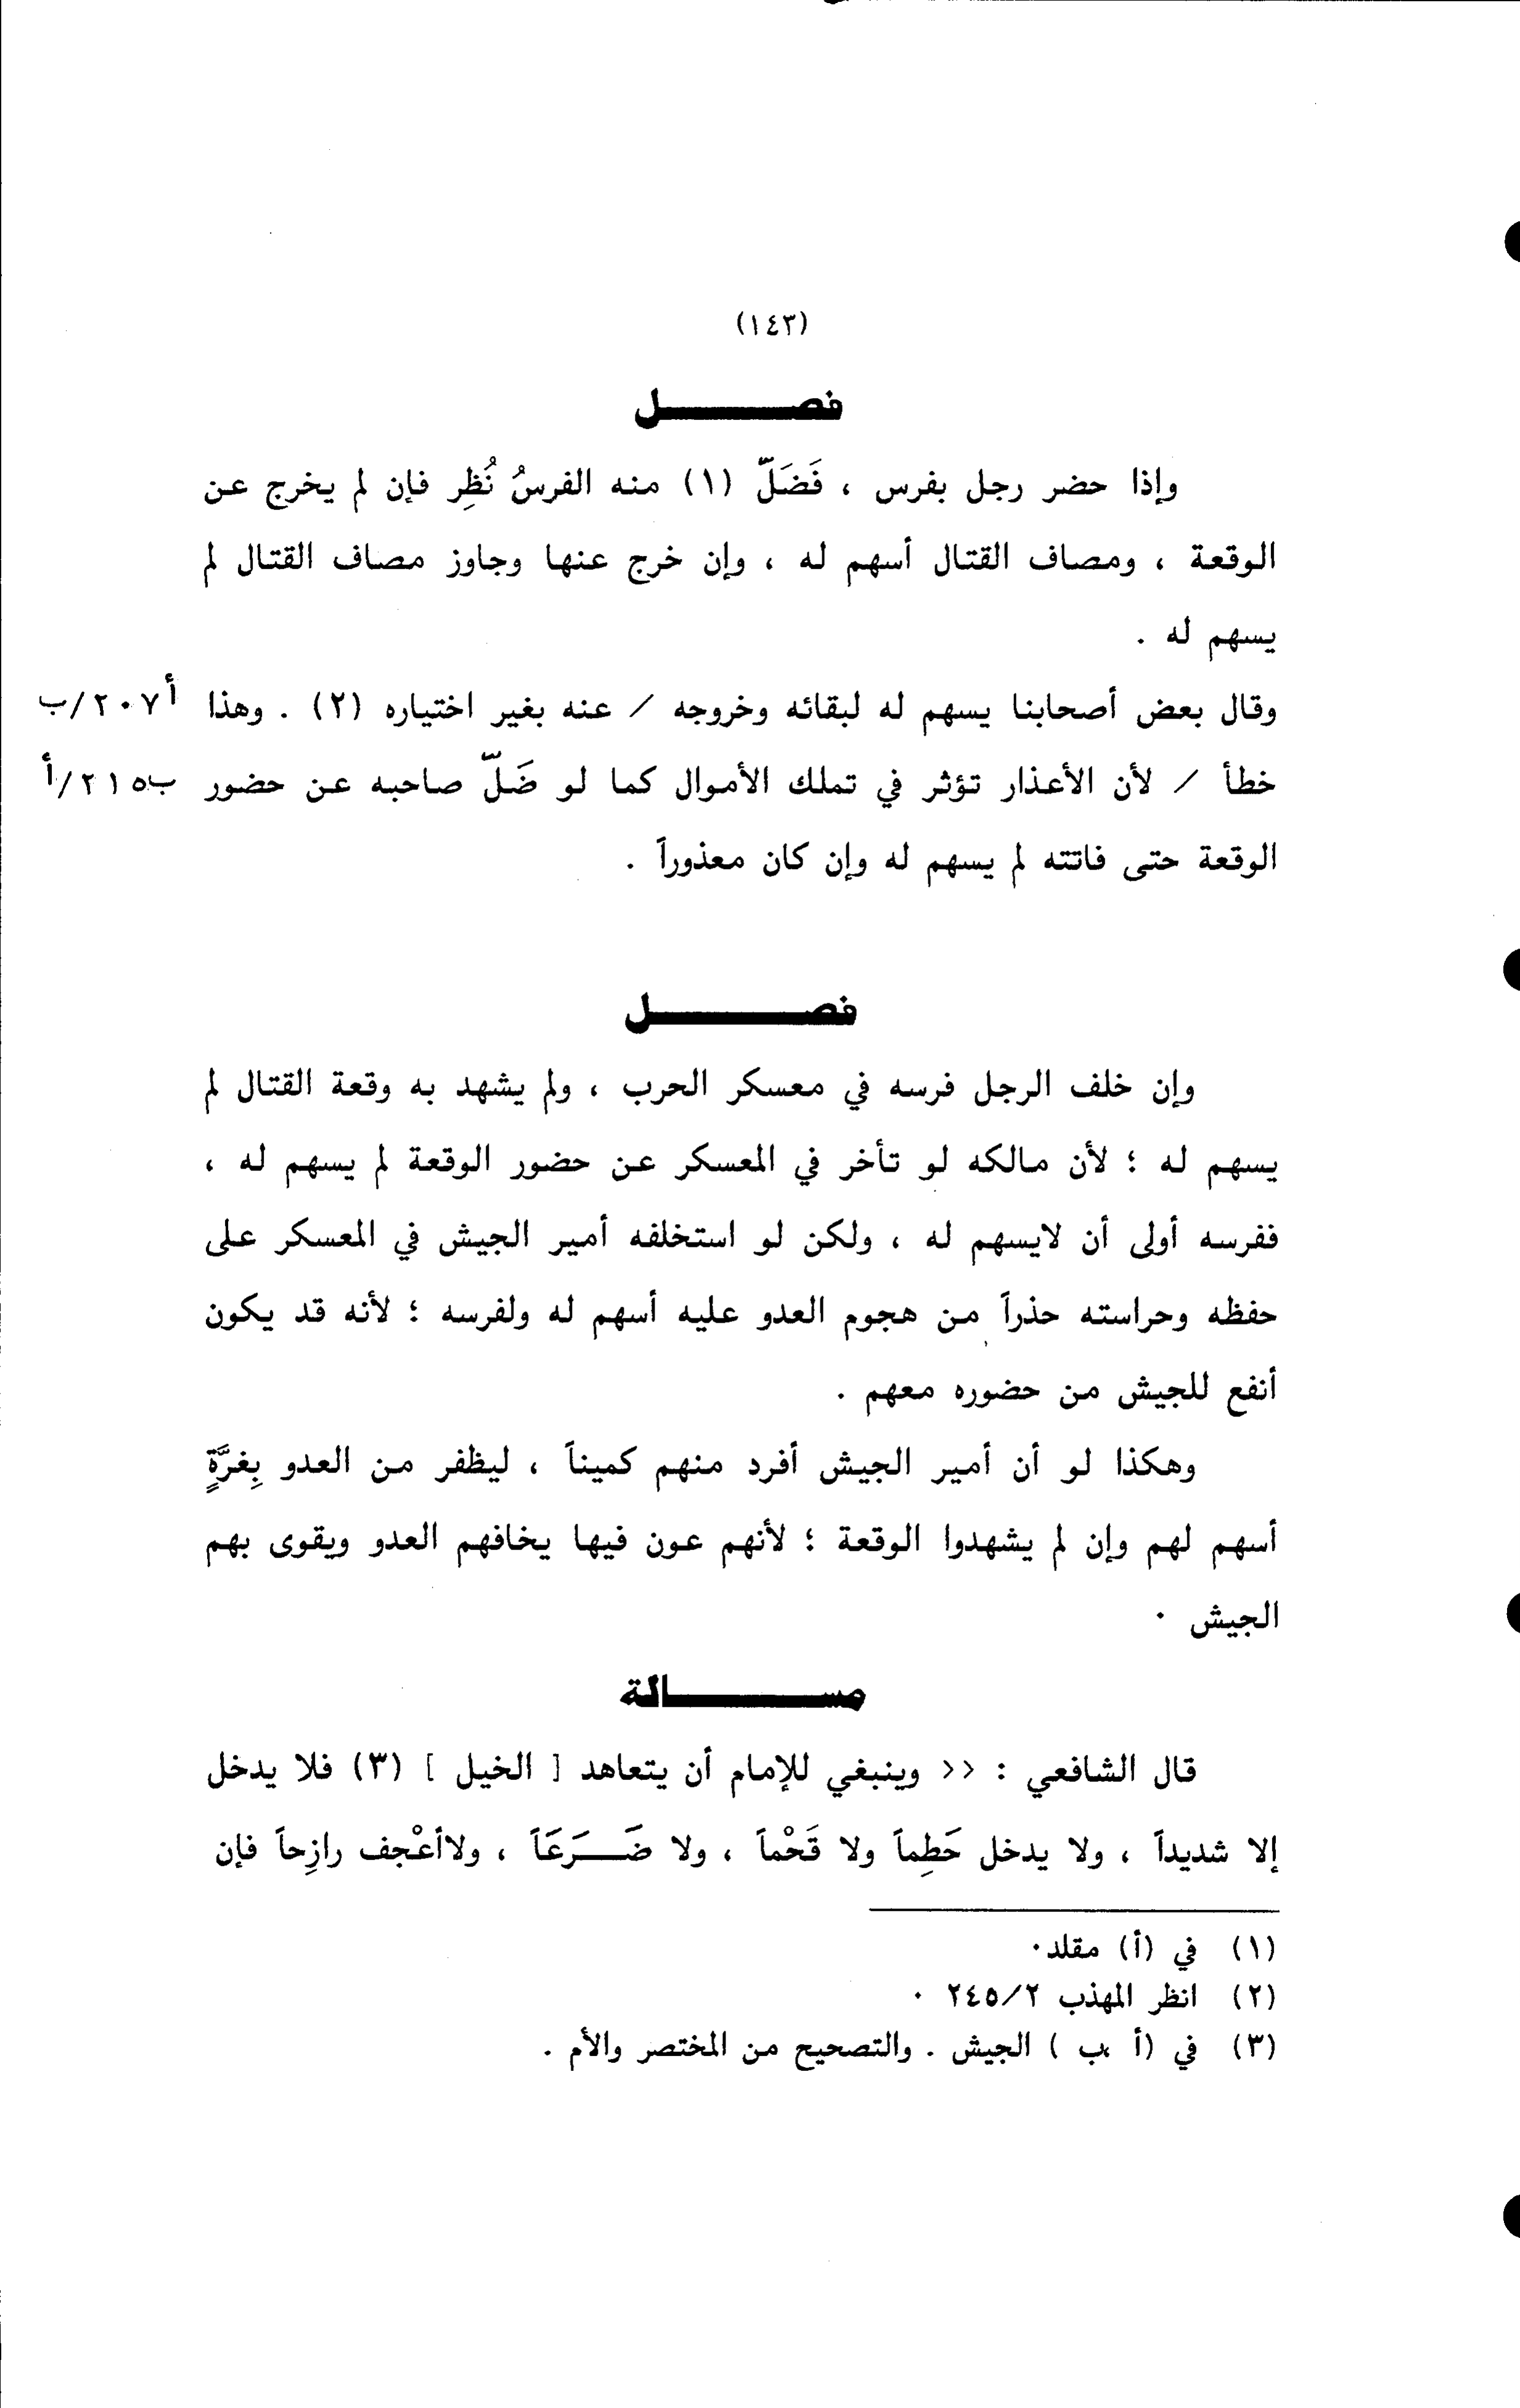 (١٤٣)
فصـــــــل
وإذا حضر رجل بفرس ، فَضَلّ (١) منه الفرسُ نُظِر فإن لم يخرج عن
الوقعة ، ومصاف القتال أسهم له ، وإن خرج عنها وجاوز مصاف القتال لم
يسهم له .
وقال بعض أصحابنا يسهم له لبقائه وخروجه / عنه بغير اختياره (٢) . وهذا أ٢٠٧/ب
خطأ / لأن الأعذار تؤثر في تملك الأموال كما لو ضَلّ صاحبه عن حضور ب٢١٥/أ
الوقعة حتى فاتته لم يسهم له وإن كان معذوراً .
فصـــــــل
وإن خلف الرجل فرسه في معسكر الحرب ، ولم يشهد به وقعة القتال لم
يسهم له ؛ لأن مالكه لو تأخر في المعسكر عن حضور الوقعة لم يسهم له ،
ففرسه أولى أن لايسهم له ، ولكن لو استخلفه أمير الجيش في المعسكر على
حفظه وحراسته حذراً من هجوم العدو عليه أسهم له ولفرسه ؛ لأنه قد يكون
أنفع للجيش من حضوره معهم .
وهكذا لو أن أمير الجيش أفرد منهم كميناً ، ليظفر من العدو بِغرَّةٍ
أسهم لهم وإن لم يشهدوا الوقعة ؛ لأنهم عون فيها يخافهم العدو ويقوى بهم
الجيش .
مســـــــألة
قال الشافعي : << وينبغي للإمام أن يتعاهد [ الخيل ] (٣) فلا يدخل
إلا شديداً ، ولا يدخل حَطِماً ولا قَحْماً ، ولا ضَـــرَعَاً ، ولاأعْجف رازِحاً فإن
(١) في (أ) مقلد.
(٢) انظر المهذب ٢٤٥/٢ .
(٣) في (أ ،ب ) الجيش . والتصحيح من المختصر والأم .